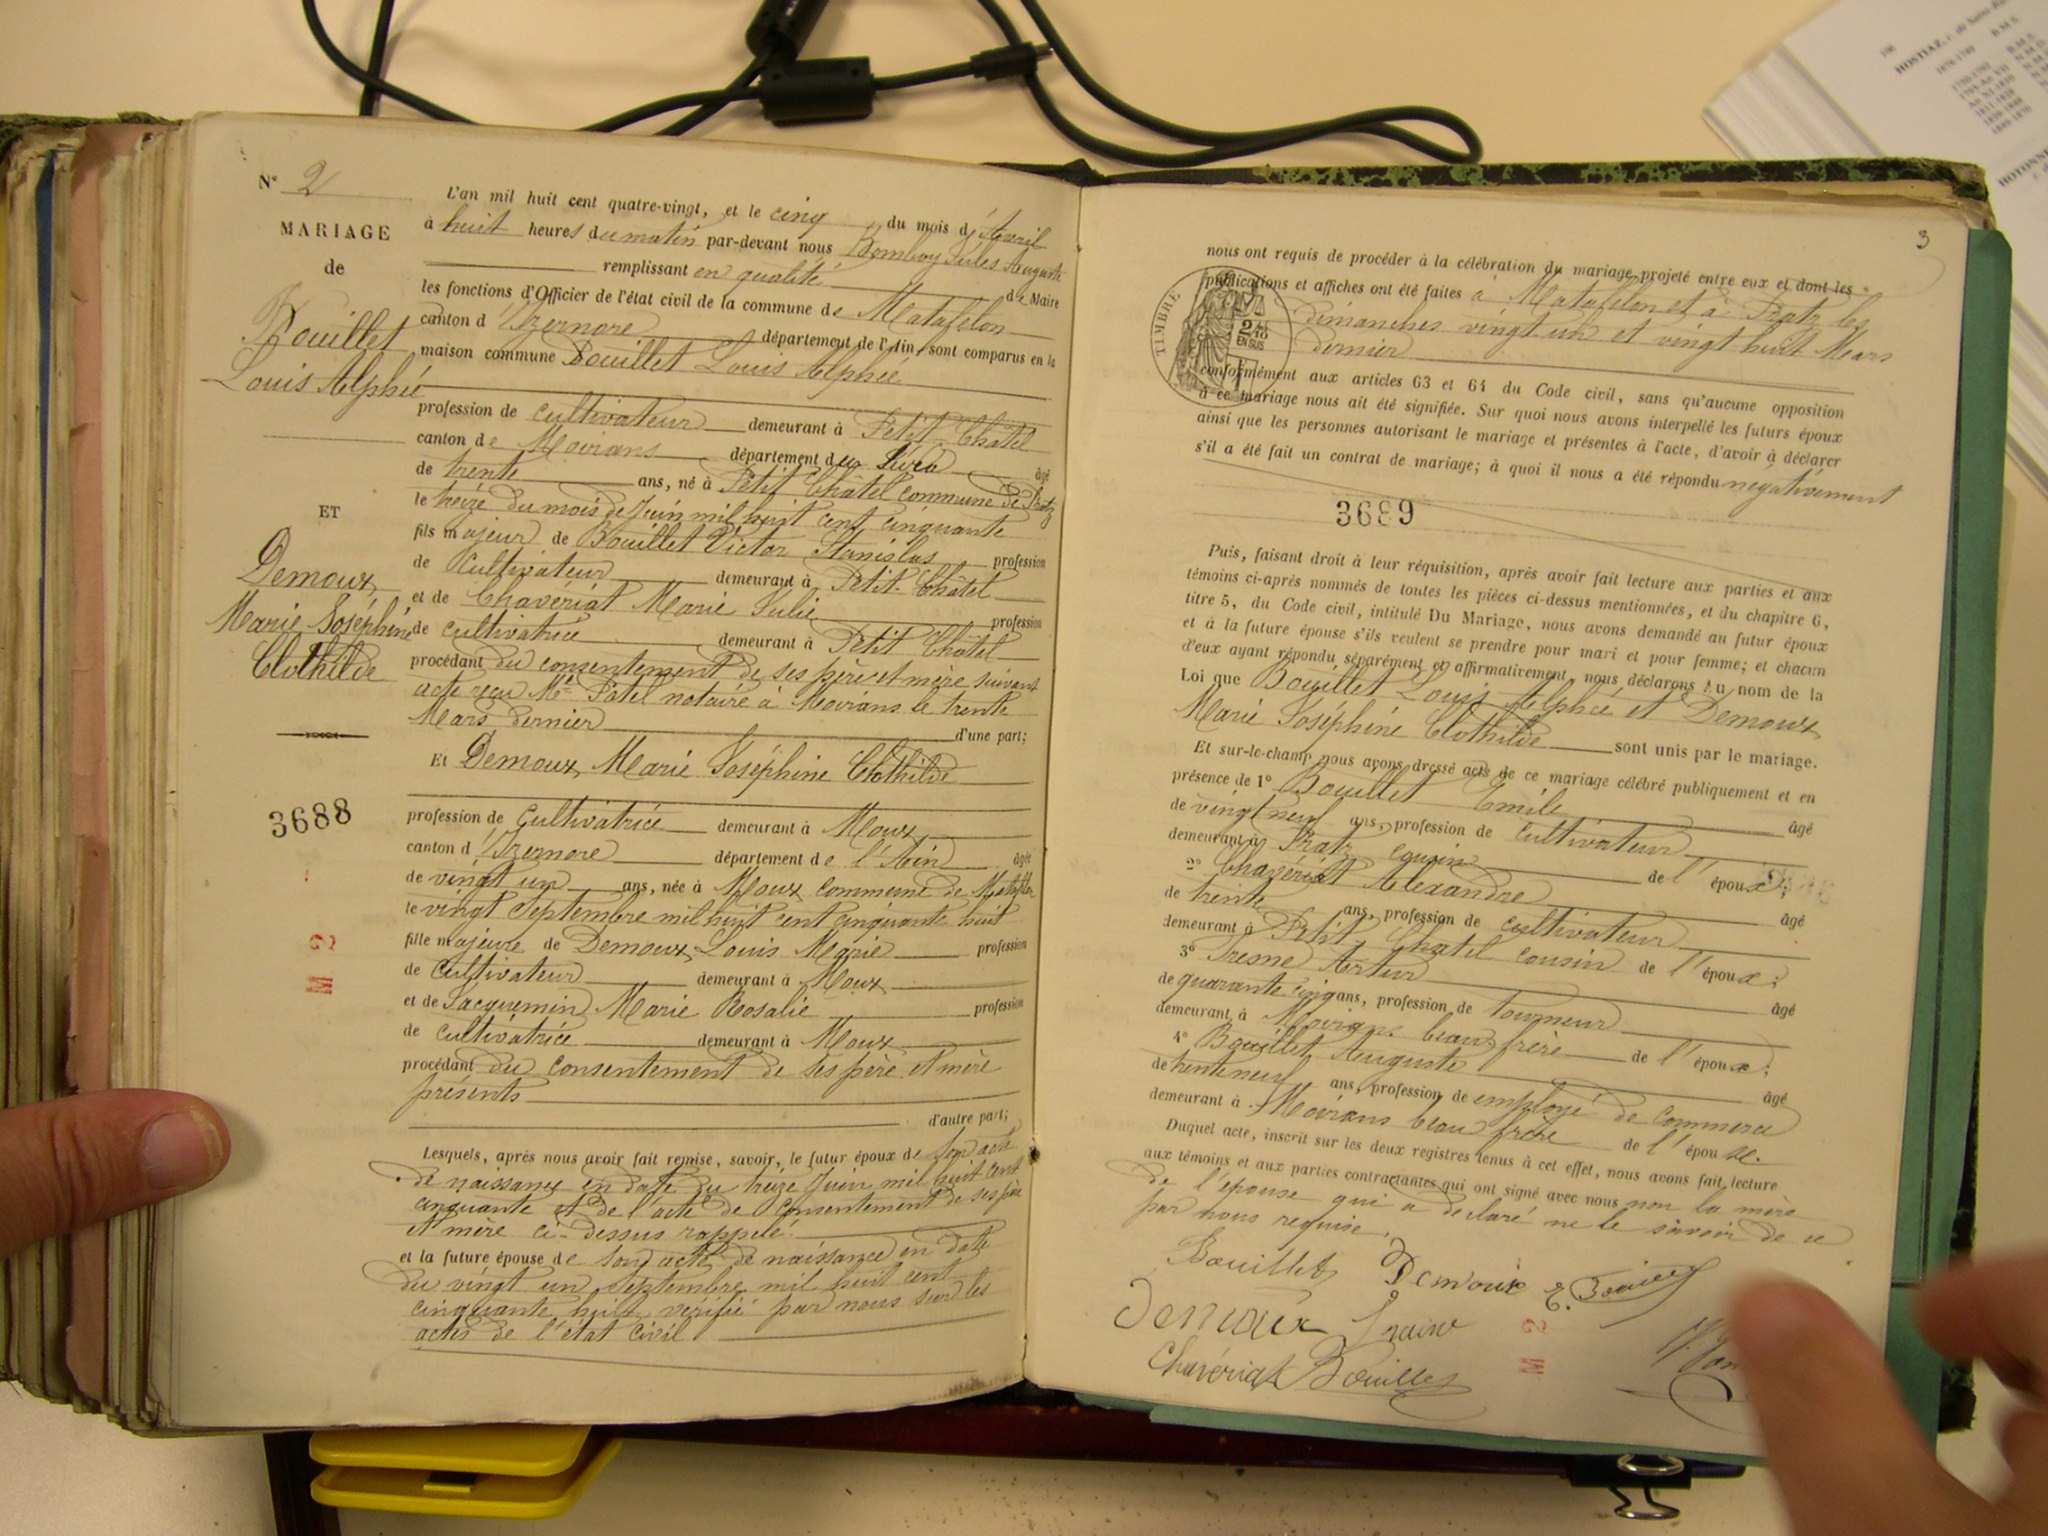 N° 2
MARIAGE
de
Bouillet
Louis Alphée
ET
Demoux
Marie Joséphine
Clothilde
3688
M 2
L'an mil huit cent quatre-vingt, et le cinq du mois d'Avril
à huit heures du matin par-devant nous Bomboy Jules Auguste
remplissant en qualité de Maire
les fonctions d'Officier de l'état civil de la commune de Matafelon
canton d'Izernore département de l'Ain, sont comparus en la
maison commune Bouillet Louis Alphée
profession de cultivateur demeurant à Petit Châtel
canton de Moirans département du Jura âgé
de trente ans, né à Petit Châtel commune de Pratz
le treize du mois de Juin mil huit cent cinquante
fils majeur de Bouillet Victor Stanislas profession
de Cultivateur demeurant à Petit-Châtel
et de Chavériat Marie Julie profession
de cultivatrice demeurant à Petit Châtel
procédant du consentement de ses père et mère suivant
acte reçu Me notaire à Moirans le trente
Mars dernier d'une part;
Et Demoux Marie Joséphine Clothilde
profession de Cultivatrice demeurant à Moux
canton d'Izernore département de l'Ain âgée
de vingt un ans, née à Moux commune de
le vingt Septembre mil huit cent cinquante huit
fille majeure de Demoux Louis Marie profession
de Cultivateur demeurant à Moux
et de Jacquemin Marie Rosalie profession
de Cultivatrice demeurant à Moux
procédant du consentement de ses père et mère
présents
d'autre part;
Lesquels, après nous avoir fait remise, savoir, le futur époux de son acte
de naissance en date du treize Juin mil huit cent
cinquante et de l'acte de consentement de ses père
et mère ci-dessus rappelé.
et la future épouse de son acte de naissance en date
du vingt un Septembre mil huit cent
cinquante huit vérifié par nous sur les
actes de l'état civil
3
nous ont requis de procéder à la célébration du mariage projeté entre eux et dont les
publications et affiches ont été faites à Matafelon et à Pratz les
dimanches vingt un et vingt huit Mars
dernier
TIMBRE
EN SUS
conformément aux articles 63 et 64 du Code civil, sans qu'aucune opposition
à ce mariage nous ait été signifiée. Sur quoi nous avons interpellé les futurs époux
ainsi que les personnes autorisant le mariage et présentes à l'acte, d'avoir à déclarer
s'il a été fait un contrat de mariage; à quoi il nous a été répondu négativement
3689
Puis, faisant droit à leur réquisition, après avoir fait lecture aux parties et aux
témoins ci-après nommés de toutes les pièces ci-dessus mentionnées, et du chapitre 6,
titre 5, du Code civil, intitulé Du Mariage, nous avons demandé au futur époux
et à la future épouse s'ils veulent se prendre pour mari et pour femme; et chacun
d'eux ayant répondu séparément et affirmativement, nous déclarons au nom de la
Loi que Bouillet Louis Alphée et Demoux
Marie Joséphine Clothilde sont unis par le mariage.
Et sur-le-champ nous avons dressé acte de ce mariage célébré publiquement et en
présence de 1° Bouillet Emile âgé
de vingt neuf ans, profession de cultivateur
demeurant à Pratz cousin de l'époux;
2° Chavériat Alexandre âgé
de trente ans, profession de cultivateur
demeurant à Petit Chatel cousin de l'époux;
3° Artur âgé
de quarante cinq ans, profession de tourneur
demeurant à Moirans beau frère de l'époux;
4° Bouillet Auguste âgé
de trente neuf ans, profession de employé de commerce
demeurant à Moirans beau frère de l'époux.
Duquel acte, inscrit sur les deux registres tenus à cet effet, nous avons fait lecture
aux témoins et aux parties contractantes qui ont signé avec nous non la mère
de l'épouse qui a déclaré ne le savoir de ce
par nous requise.
Bouillet Demoux E. Bouillet
Demoux
Chavériat Bouillet
M 2
HOSTIAZ
HOTONNE